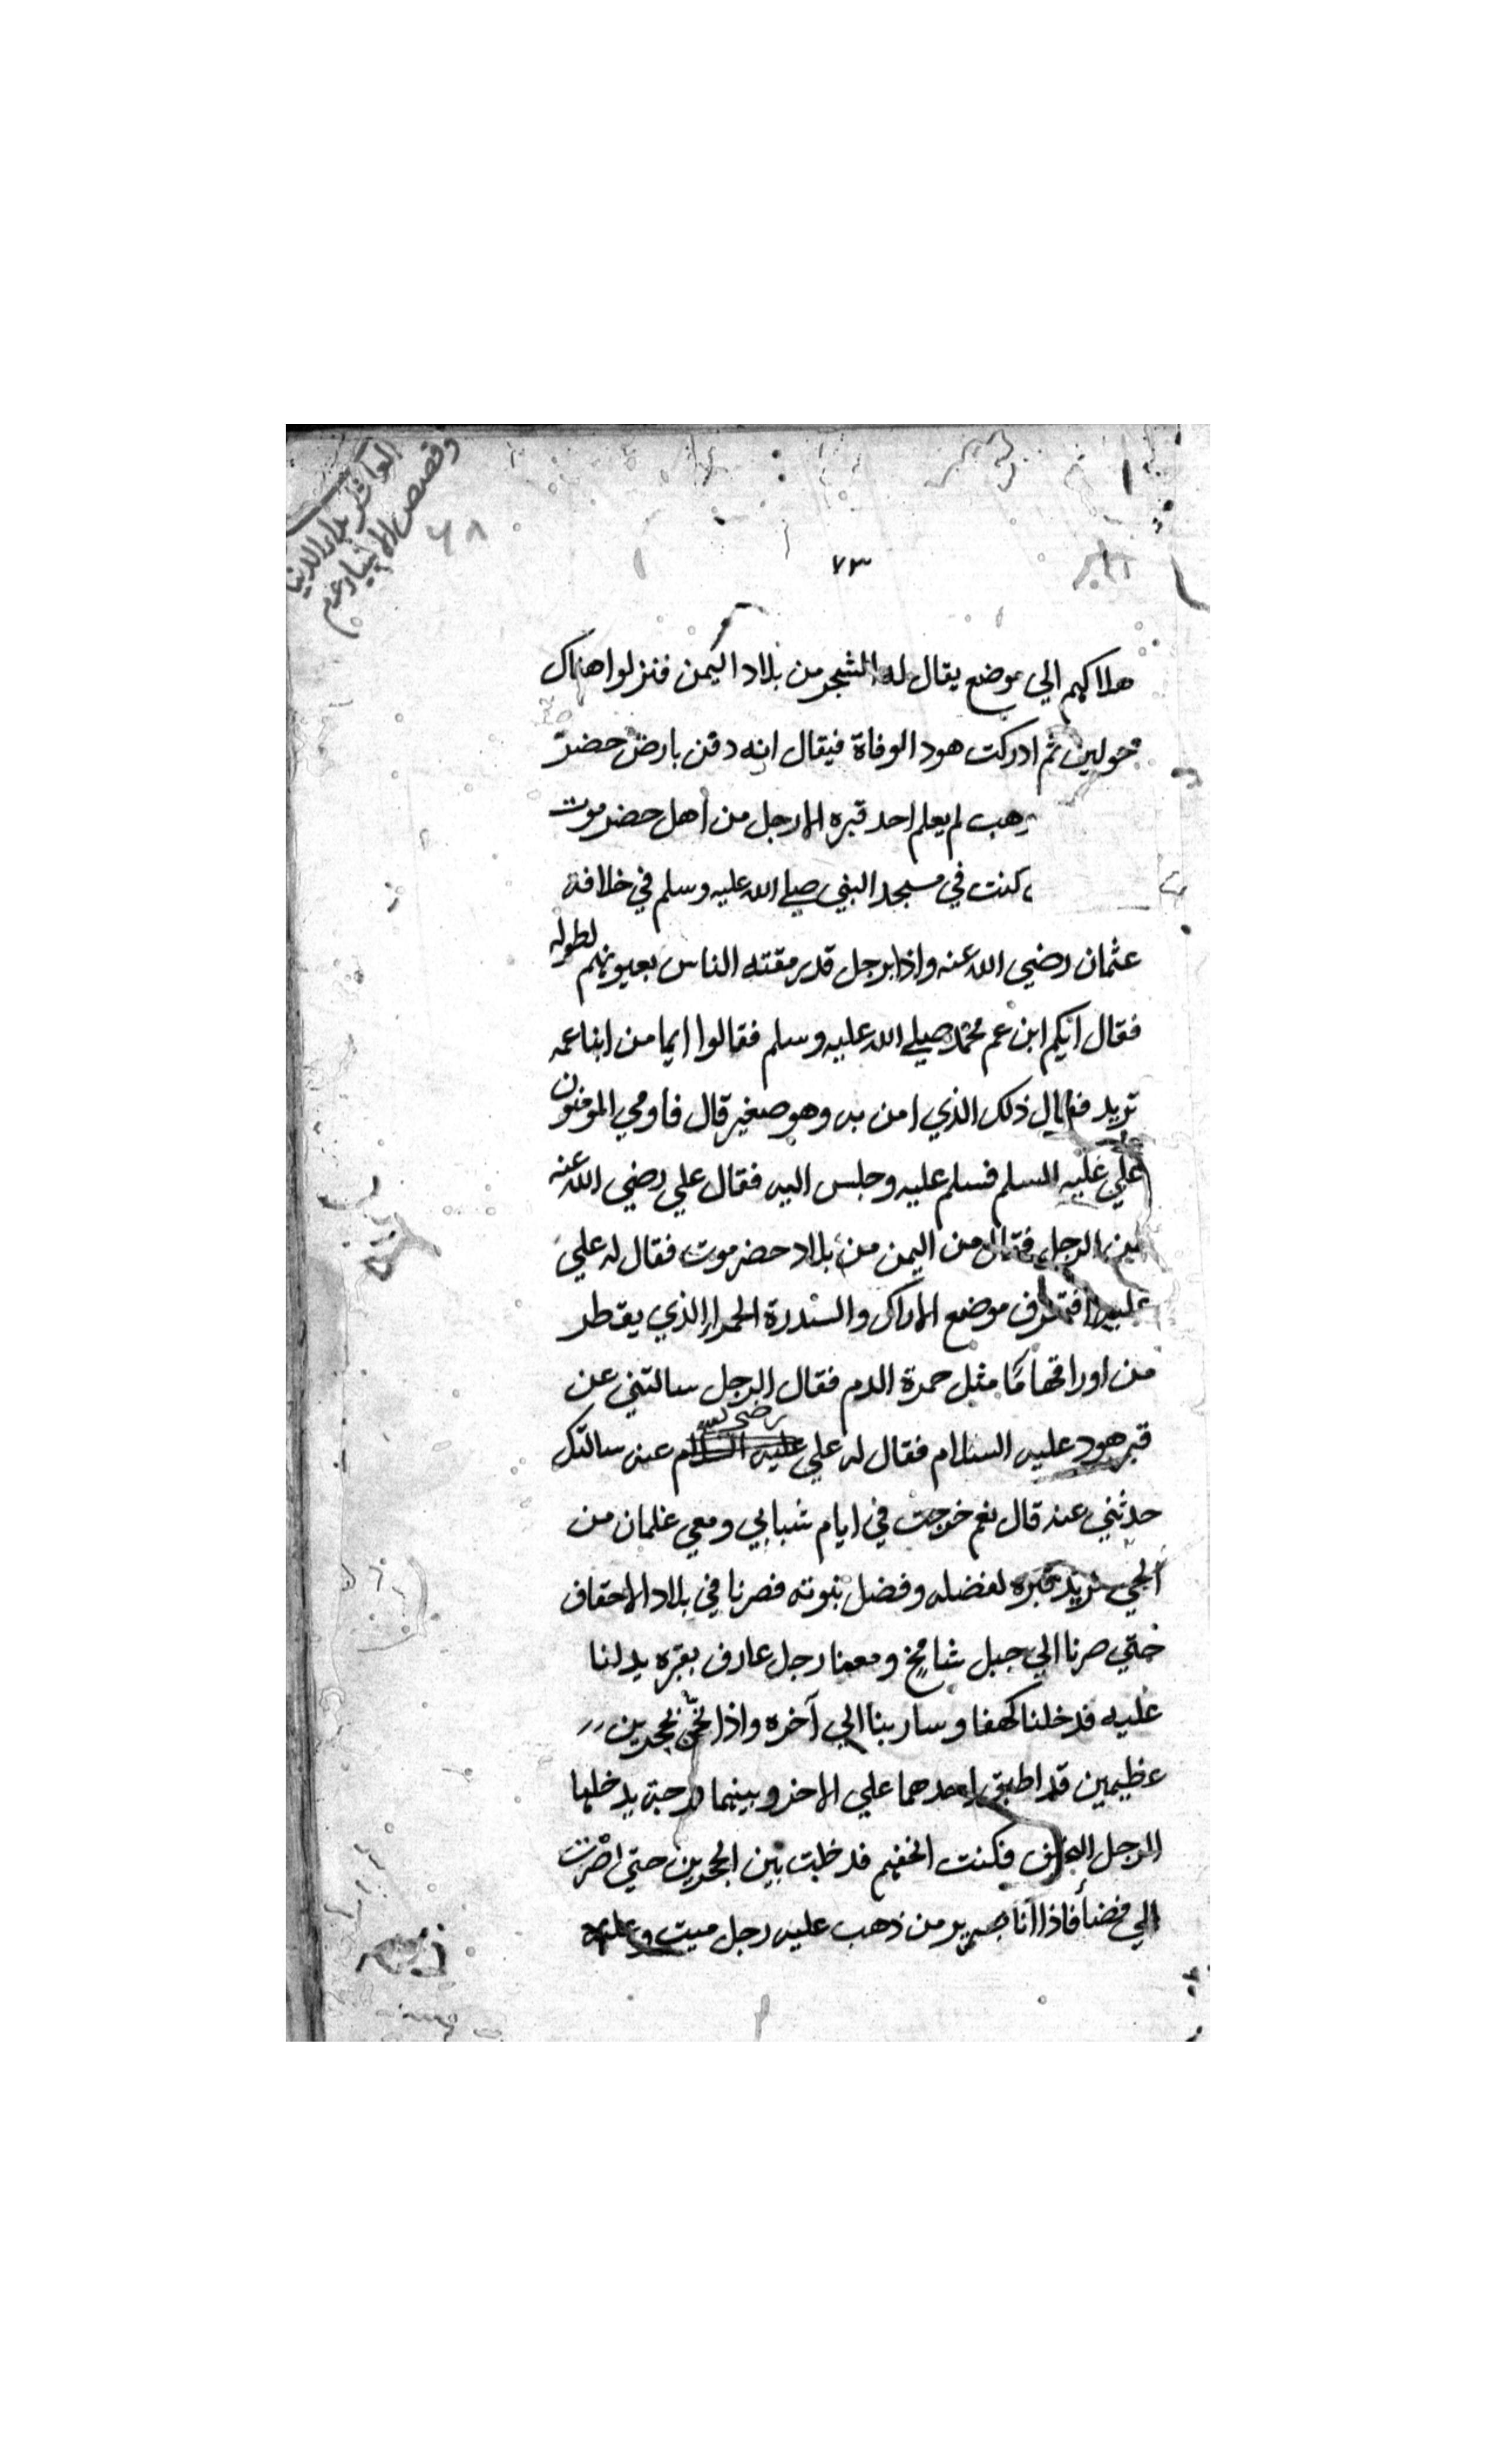 وقصص الانبياء عم
٦٨
٧٣
هلاكهم الي موضع يقال له الشجر من بلاد اليمن فنزلوا هناك
حولين ثم ادركت هود الوفاة فيقال انه دفن بارض حضر
وهب لم يعلم احد قبره الا رجل من اهل حضرموت
كنت في مسجد النبي صلي الله عليه وسلم في خلافة
عثمان رضي الله عنه واذا برجل قد رمقته الناس بعيونهم لطوله
فقال ايكم ابن عم محمد صلي الله عليه وسلم فقالوا ايما من ابنا عمه
تريد فقال ذلك الذي امن به وهو صغير قال فاومي المومنون
علي عليه السلم فسلم عليه وجلس اليه فقال علي رضي الله عنه
الرجل فقال من اليمن من بلاد حضرموت فقال له علي
موضع الاراك والسدرة الحمرا الذي يقطر
من اوراقها ما مثل حمرة الدم فقال الرجل سالتني عن
قبر هود عليه السلام فقال له علي عليه السلام رضي الله عنه سالتك
حدثني عنه قال نعم خرجت في ايام شبابي ومعي غلمان من
الحي نريد قبره لفضله وفضل نبوته فصرنا في بلاد الاحقاف
حتي صرنا الي جبل شامخ ومعنا رجل عارف بقبره يدلنا
عليه فدخلنا كهفا وسار بنا الي آخره واذا نحن بحجرين
عظيمين قد اطبق احدهما علي الاخر وبينهما فرجة يدخلها
الرجل فكنت انحفهم فدخلت بين الحجرين حتي صرت
الي فضأ فاذا انا بسرير من ذهب عليه رجل ميت وعليه